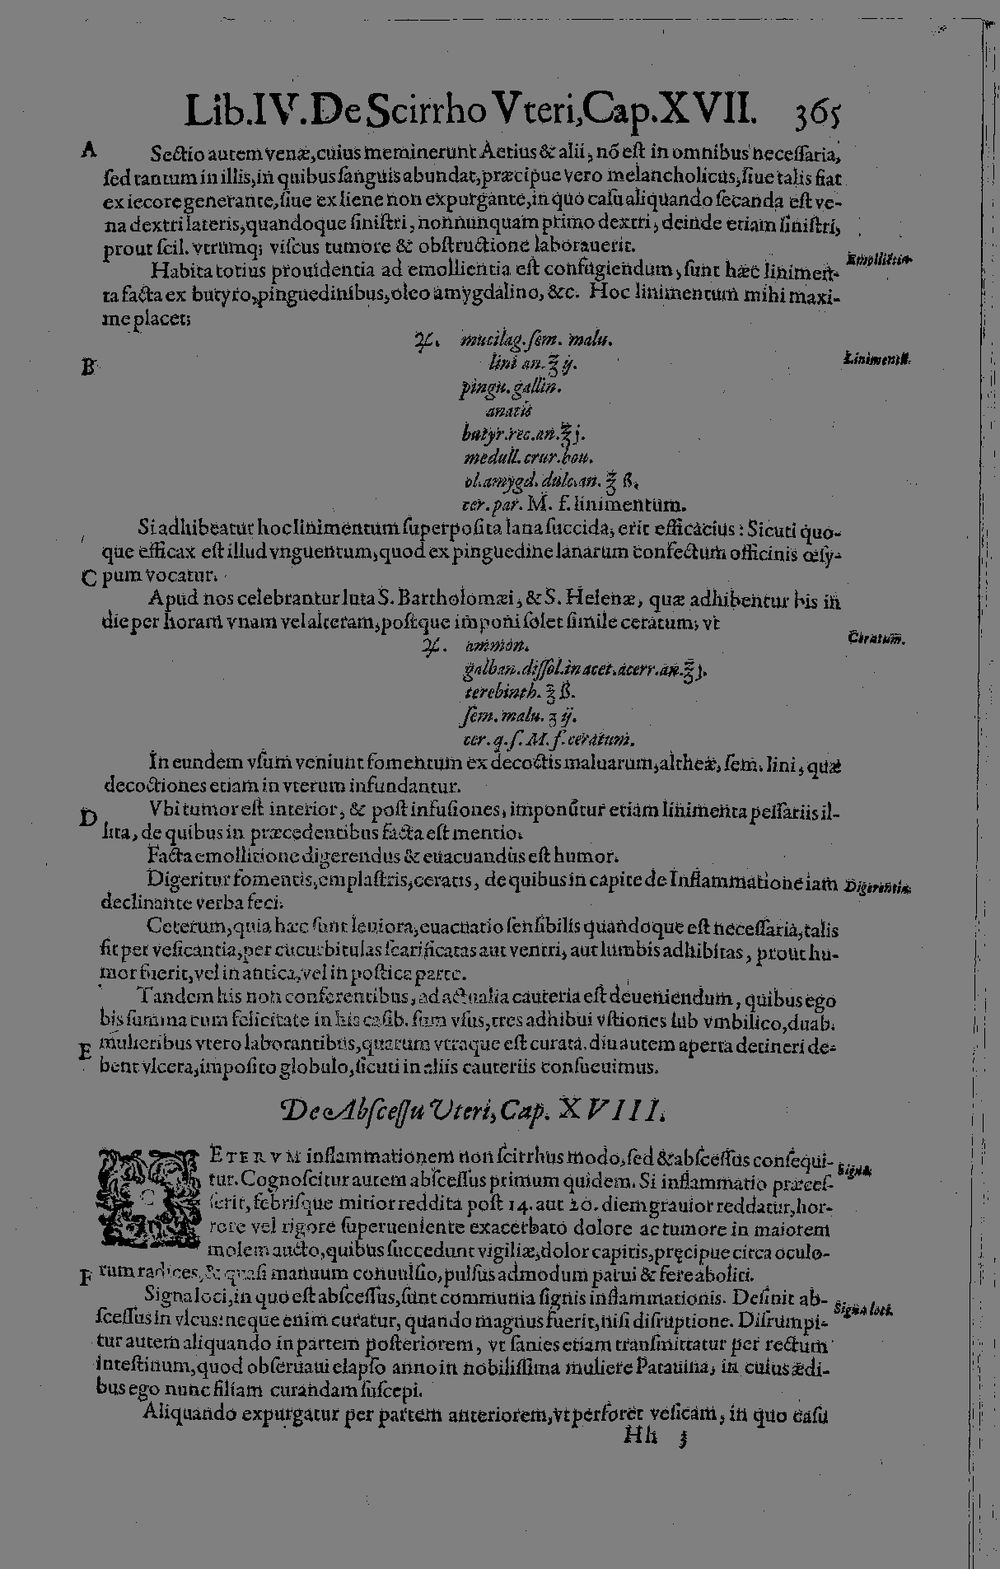 Lib.IV.De Scirrho Vteri,Cap.XVII. 365
A Sectio autem venæ,cuius meminerunt Aetius & alii, nõ est in omnibus necessaria,
sed tantum in illis,in quibus sanguis abundat,præcipue vero melancholicus,siue talis fiat
ex iecore generante,siue ex liene non expurgante,in quo casu aliquando secanda est ve-
na dextri lateris,quandoque sinistri, nonnunquam primo dextri, deinde etiam sinistri,
prout scil. vtrumq; viscus tumore & obstructione laborauerit.
Habita totius prouidentia ad emollientia est confugiendum, sunt hæc linimen-
Emollientia.
ta facta ex butyro,pinguedinibus,oleo amygdalino, &c. Hoc linimentum mihi maxi-
me placet;
♃. mucilag.sem. malu.
B lini an.℥ ij.
Linimentũ.
pingu.gallin.
anatis
butyr.rec.an.℥ j.
medull.crur.bou.
ol.amygd.dulc.an. ℥ ß.
cer.par. M. f. linimentum.
Si adhibeatur hoc linimentum superposita lana succida, erit efficacius : Sicuti quo-
que efficax est illud vnguentum,quod ex pinguedine lanarum confectum officinis œsy-
C pum vocatur.
Apud nos celebrantur luta S. Bartholomæi, & S. Helenæ, quæ adhibentur bis in
die per horam vnam vel alteram,postque imponi solet simile ceratum; vt
Ceratum.
♃. ammon.
galban.dissol.in acet.acerr.an.℥ j.
terebinth. ℥ ß.
sem. malu. ʒ ij.
cer. q. s. M. f. ceratum.
In eundem vsum veniunt fomentum ex decoctis maluarum,altheæ, sem. lini, quæ
decoctiones etiam in vterum infundantur.
D Vbi tumor est interior, & post infusiones, imponũtur etiam linimenta pessariis il-
lita, de quibus in præcedentibus facta est mentio.
Facta emollitione digerendus & euacuandus est humor.
Digeritur fomentis,emplastris,ceratis, de quibus in capite de Inflammatione iam
Digerentia.
declinante verba feci.
Ceterum,quia hæc sunt leniora,euacuatio sensibilis quandoque est necessaria,talis
fit per vesicantia,per cucurbitulas scarificatas aut ventri, aut lumbis adhibitas, prout hu-
mor fuerit,vel in antica,vel in postica parte.
Tandem his non conferentibus, ad actualia cauteria est deueniendum, quibus ego
bis summa cum felicitate in his casib. sum vsus,tres adhibui vstiones sub vmbilico,duab.
E mulieribus vtero laborantibus,quarum vtraque est curata. diu autem aperta detineri de-
bent vlcera,imposito globulo,sicuti in aliis cauteriis consueuimus.
De Abscessu Vteri, Cap. XVIII.
ETERVM inflammationem non scirrhus modo,sed & abscessus consequi-
Signa.
tur. Cognoscitur autem abscessus primum quidem. Si inflammatio præces-
serit, febrisque mitior reddita post 14. aut 20. diem grauior reddatur,hor-
rore vel rigore superueniente exacerbato dolore ac tumore in maiorem
molem aucto,quibus succedunt vigiliæ,dolor capitis,pręcipue circa oculo-
F rum radices, & quasi manuum conuulsio,pulsus admodum parui & fere aboliti.
Signa loci,in quo est abscessus,sunt communia signis inflammationis. Desinit ab-
Signa loci.
scessus in vlcus:neque enim curatur, quando magnus fuerit,nisi disruptione. Disrumpi-
tur autem aliquando in partem posteriorem, vt sanies etiam transmittatur per rectum
intestinum,quod obseruaui elapso anno in nobilissima muliere Patauina, in cuius ædi-
bus ego nunc filiam curandam suscepi.
Aliquando expurgatur per partem anteriorem,vt perforet vesicam, in quo casu
Hh 3